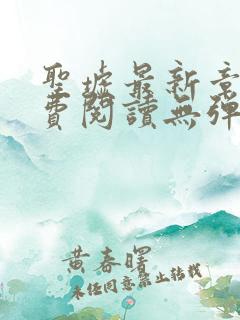 聖墟最新章
費閱讀無彈
黃春曙
未經同意禁止轉載